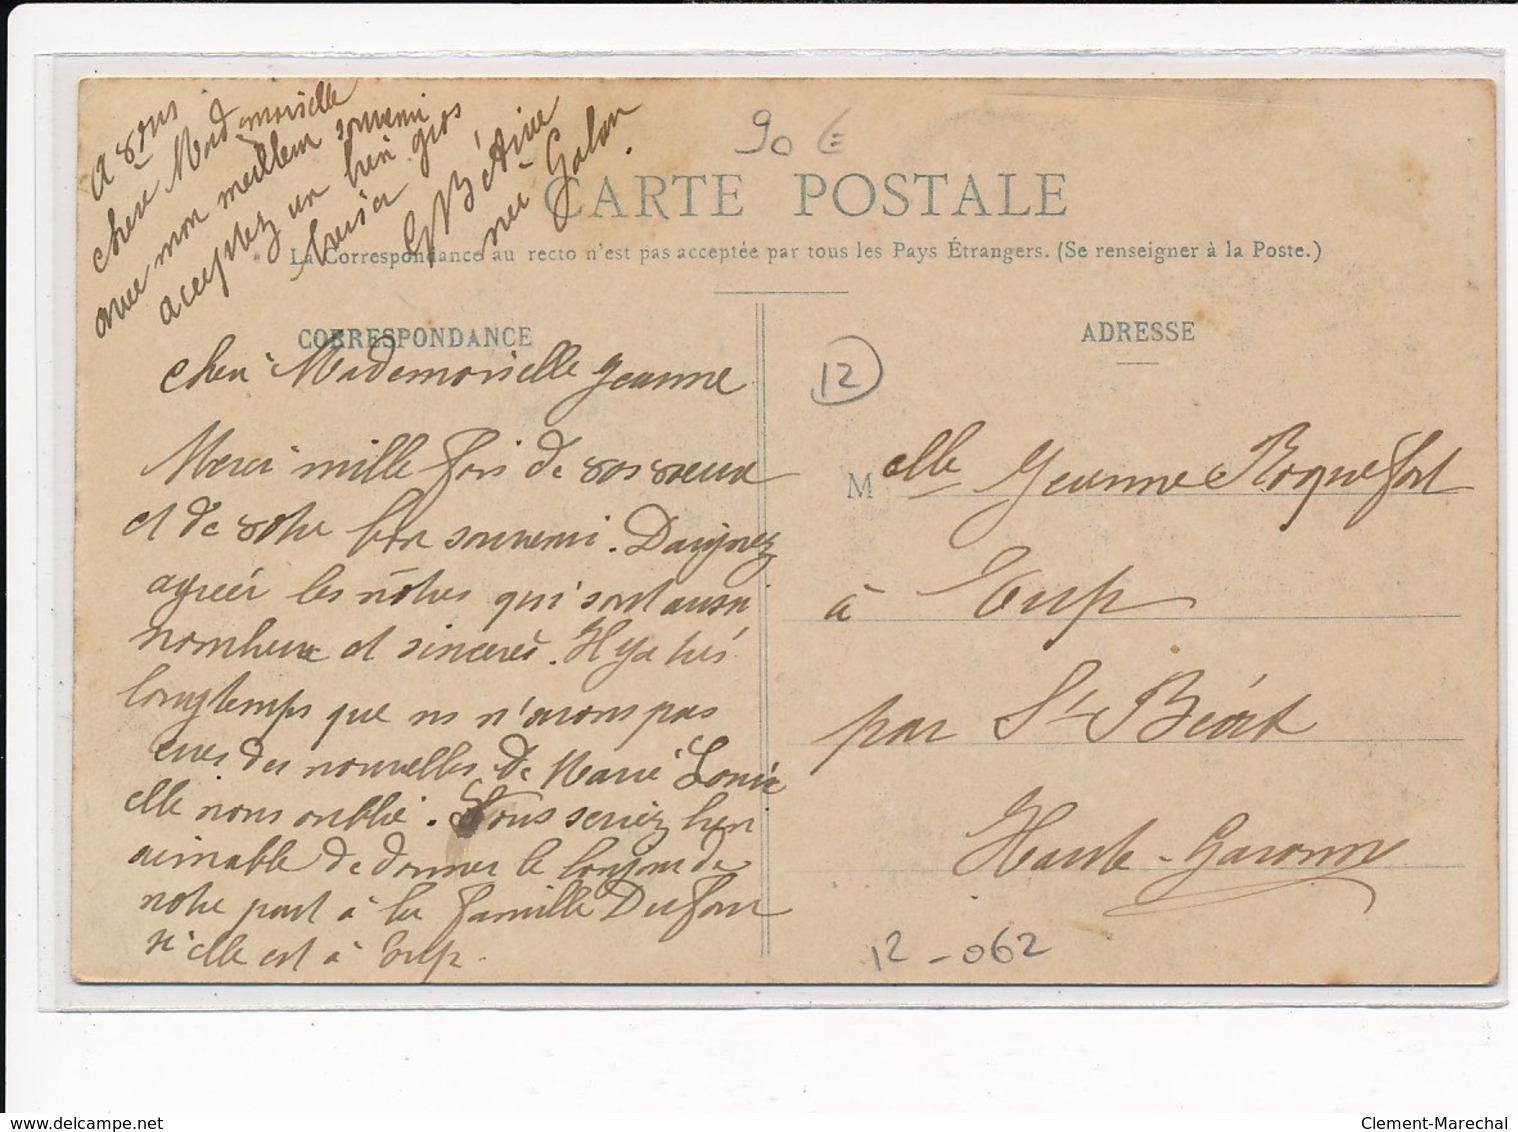 A vous
chère Mademoiselle
avec mon meilleur souvenir
acceptez un bien gros
baiser
née Galan.
90 €
CARTE POSTALE
La Correspondance au recto n'est pas acceptée par tous les Pays Étrangers. (Se renseigner à la Poste.)
CORRESPONDANCE
Chère Mademoiselle Jeanne
Merci mille fois de vos vœux
et de votre bon souvenir. Daignez
agréer les nôtres qui sont aussi
nombreux et sincères. Il y a très
longtemps que ns n'avons pas
eues des nouvelles de Marie Louise
elle nous oublie. Vous seriez bien
aimable de donner le bonjour de
notre part à la famille Dufour
si elle est à Eup.
ADRESSE
12
Melle Jeanne Roquefort
à Eup
par St Béat
Haute-Garonne
12-062
www.delcampe.net
Clement-Marechal